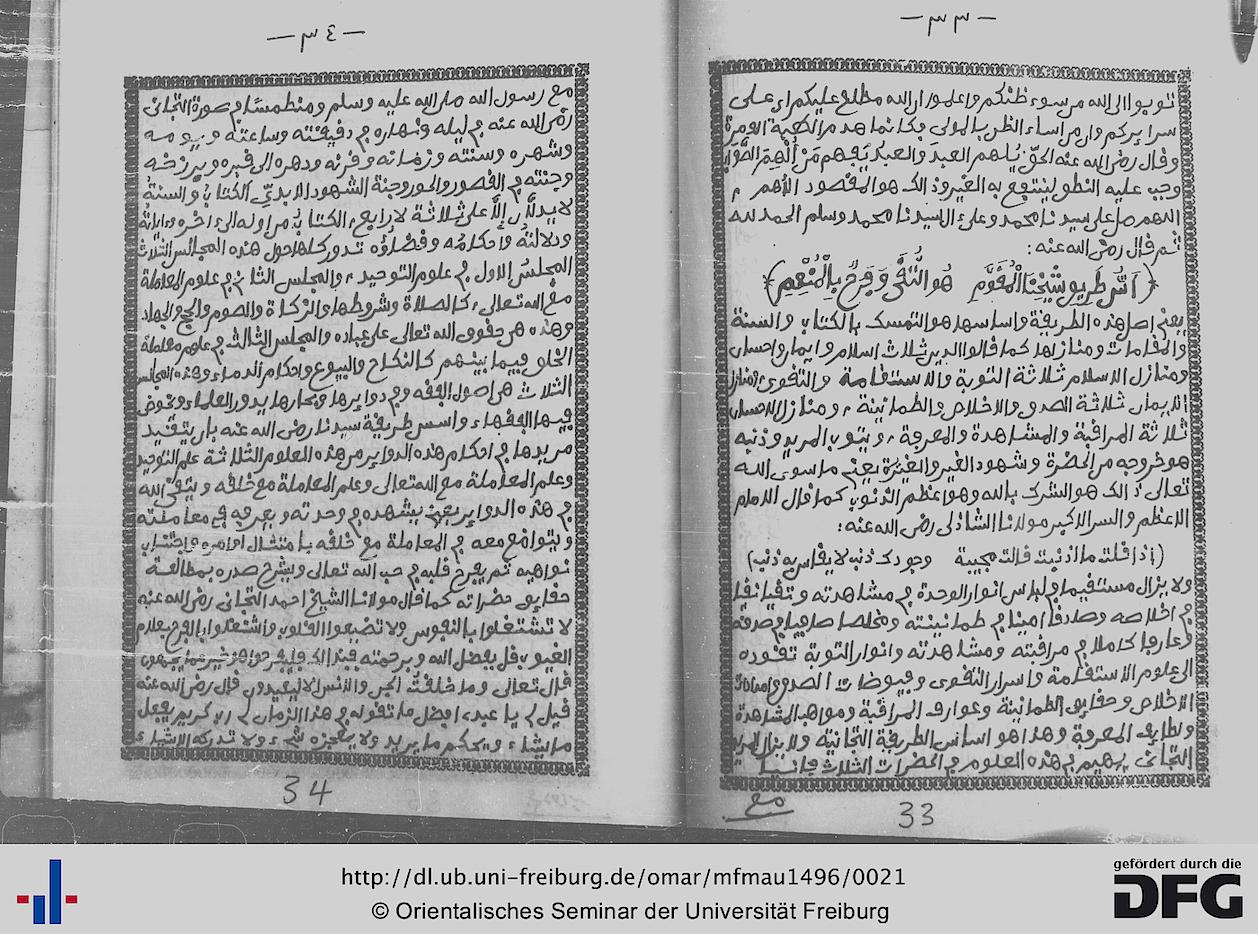 — ٣٣ —
توبوا الى الله من سوء ظنكم واعلموا ان الله مطلع عليكم اى على
سرايركم وان من اساء الظن بالمولى فكانما هدم الكعبة الومرة
وقال رضى الله عنه الحق يلهم العبد والعبد يفهم من ألهم الصواب
وجب عليه النطق لينتفع به الغير وذالك هو المقصود الأهم
اللهم صل على سيدنا محمد وعلى ءال سيدنا محمد وسلم الحمد لله
ثم قال رضى الله عنه:
(أس طريق شيخنا المقوم هو التقى وفرح بالمنعم)
يعنى اصل هذه الطريقة واساسها هو التمسك بالكتاب والسنة
والمقامات ومنازلها كما قالوا الدين ثلاث اسلام وايمان واحسان
ومنازل الاسلام ثلاثة التوبة والاستقامة والتقوى ومنازل
الايمان ثلاثة الصدق والاخلاص والطمانينة ومنازل الاحسان
ثلاثة المراقبة والمشاهدة والمعرفة ويتوب المريد وذنبه
هو خروجه من الحضرة وشهود الغير والغيرة يعنى ما سوى الله
تعالى ذالك هو الشرك بالله وهو اعظم الذنوب كما قال الامام
الاعظم والسر الاكبر مولانا الشاذلى رضى الله عنه:
(إذا قلت ما اذنبت قالت مجيبة وجودك ذنب لا يقاس به ذنب)
ولا يزال مستقيما فى لباس انوار الوحدة فى مشاهدته وتقيا نقيا
فى اخلاصه وصادقا امينا فى طمانينته ومخلصا صافيا فى صدقه
وعارفا كاملا فى مراقبته ومشاهدته وانوار التوبة تقوده
الى علوم الاستقامة واسرار التقوى وفيوضات الصدق
الاخلاص وحقايق الطمانينة وعوارف المراقبة ومواهب المشاهدة
ولطايف المعرفة وهذا هو اساس الطريقة التجانية ولا يزال المريد
التجانى يهيم فى هذه العلوم فى الحضرات الثلاث فانيا
مع
33
— ٣٤ —
مع رسول الله صلى الله عليه وسلم ومنطمسا فى صورة التجانى
رضى الله عنه فى ليله ونهاره فى دقيقته وساعته ويومه
وشهره وسنته وزمانه وقرنه ودهره الى قبره وبرزخه
وجنته فى القصور والحور وجنة الشهود الابدى الكتاب والسنة
لا يدلان إلا على ثلاثة لا رابع الكتاب من اوله الى ءاخره وءاياته
ودلالته وأحكامه وقضاؤه تدور كلها حول هذه المجالس الثلاث
المجلس الاول فى علوم التوحيد والمجلس الثانى فى علوم المعاملة
مع الله تعالى كالصلاة وشروطها والزكاة والصوم والحج والجهاد
وهذه هى حقوق الله تعالى على عباده والمجلس الثالث فى علوم معاملة
الخلق فيما بينهم كالنكاح والبيوع واحكام الدماء وهذه المجالس
الثلاث هى اصول الفقه وفى دوايرها وبحارها يدور العلماء وتخوض
فيها الفقهاء واسس طريقة سيدنا رضى الله عنه بان يتقيد
مريدها فى احكام هذه الدواير من هذه العلوم الثلاثة علم التوحيد
وعلم المعاملة مع الله تعالى وعلم المعاملة مع خلقه ويتقى الله
فى هذه الدواير يعنى يشهده فى وحدته ويعرفه فى معاملته
ويتواضع معه فى المعاملة مع خلقه بامتثال اوامره واجتناب
نواهيه ثم يفرح قلبه فى حب الله تعالى ويشرح صدره بمطالعة
حقايق حضراته كما قال مولانا الشيخ احمد التجانى رضى الله عنه
لا تشتغلوا بالنفوس ولا تضيعوا القلوب واشتغلوا بالفرح بعلام
الغيوب قل بفضل الله وبرحمته فبذالك فليفرحوا هو خير مما يجمعون
قال تعالى وما خلقت الجن والانس الا ليعبدون قال رضى الله عنه
قيل لى يا عبدى افضل ما تقوله فى هذا الزمان لى رب كريم يفعل
ما يشاء ويحكم ما يريد ولا يعجزه شىء ولا تدركه الاشياء
34
http://dl.ub.uni-freiburg.de/omar/mfmau1496/0021
© Orientalisches Seminar der Universität Freiburg
gefördert durch die
DFG